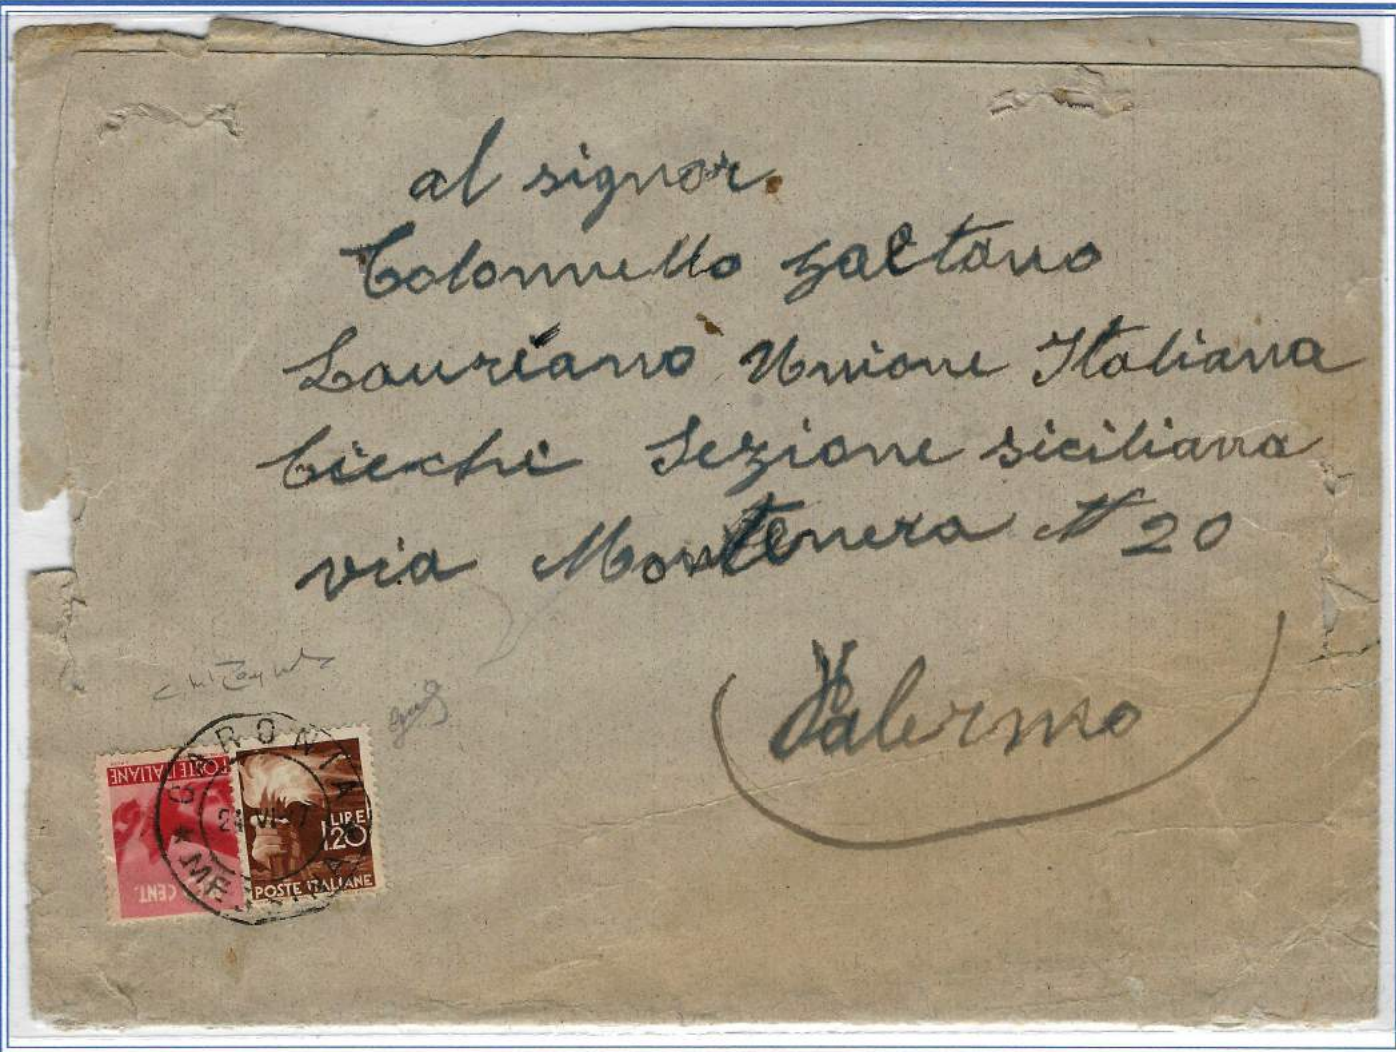 al signor.
Colonnello Gaetano
Lauriano Unione Italiana
Ciechi Sezione siciliana
via Montenera N 20
Palermo
CARONIA
24 VI
* MESSINA
POSTE ITALIANE
CENT.
LIRE
1.20
POSTE ITALIANE